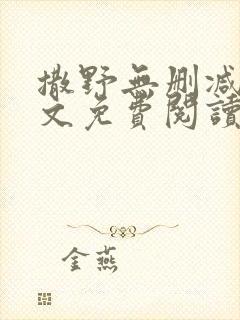 撒野無删减
文免費閱讀
金燕